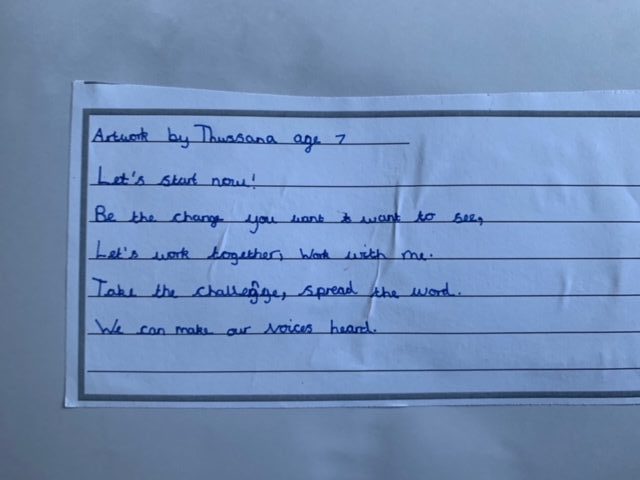 Artwork by Thussana age 7
Let's start now!
Be the change you want to want to see,
Let's work together, Work with me.
Take the challenge, spread the word.
We can make our voices heard.